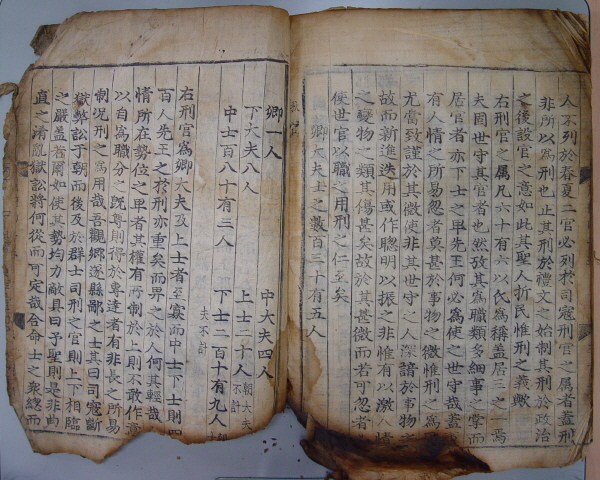 人不列於春夏二官必列於司寇刑官之属者蓋刑
非所以為刑也止其刑於禮文之始制其刑於政治
之後設官之意如此其聖人折民惟刑之義歟
右刑官之属凡六十有六以氏為稱蓋居三之一焉
夫固世守其官者也然攷其為職類多細事之掌而
居官者亦下士之卑先王何必為使之世守哉蓋
有人情之所易忽者莫甚於事物之微惟刑之為
尤當致謹於其微使非其世守之人深諳於事物
故而新進迭用或作聰明以振之非惟有以激人情
之變物之類其傷甚矣故於其甚微而若可忽者
使世官以職之用刑之仁至矣
卿大夫士之數百三十有五人
卿一人
中大夫四人
下大夫八人
上士二十人
朝大夫不計
中士百八十有三人
下士二百十有九人
夫不計
右刑官為卿大夫及上士者至寡而中士下士則四
百人先王之於刑亦重矣而畀之於人何其輕哉
情所在勢位之卑者其權有所制於上則不敢作意
以自為職分之既尊則得於專達者有非長之所易
制況刑之為用哉吾觀鄉遂縣鄙之士其曰司寇斷
獄弊訟于朝而後及於群士司刑之官則上下相臨
之嚴蓋者爾如使其勢均力敵具曰予聖則是非曲
直之淆亂獄訟將何從而可定哉合命士之衆總而